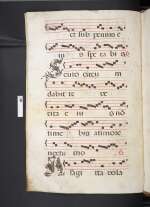 et sub pennis e
ius spe ra bi s
Scuto circu m
dabit te ve
rita s
time bis a timore
nocturno
A sagi tta vola